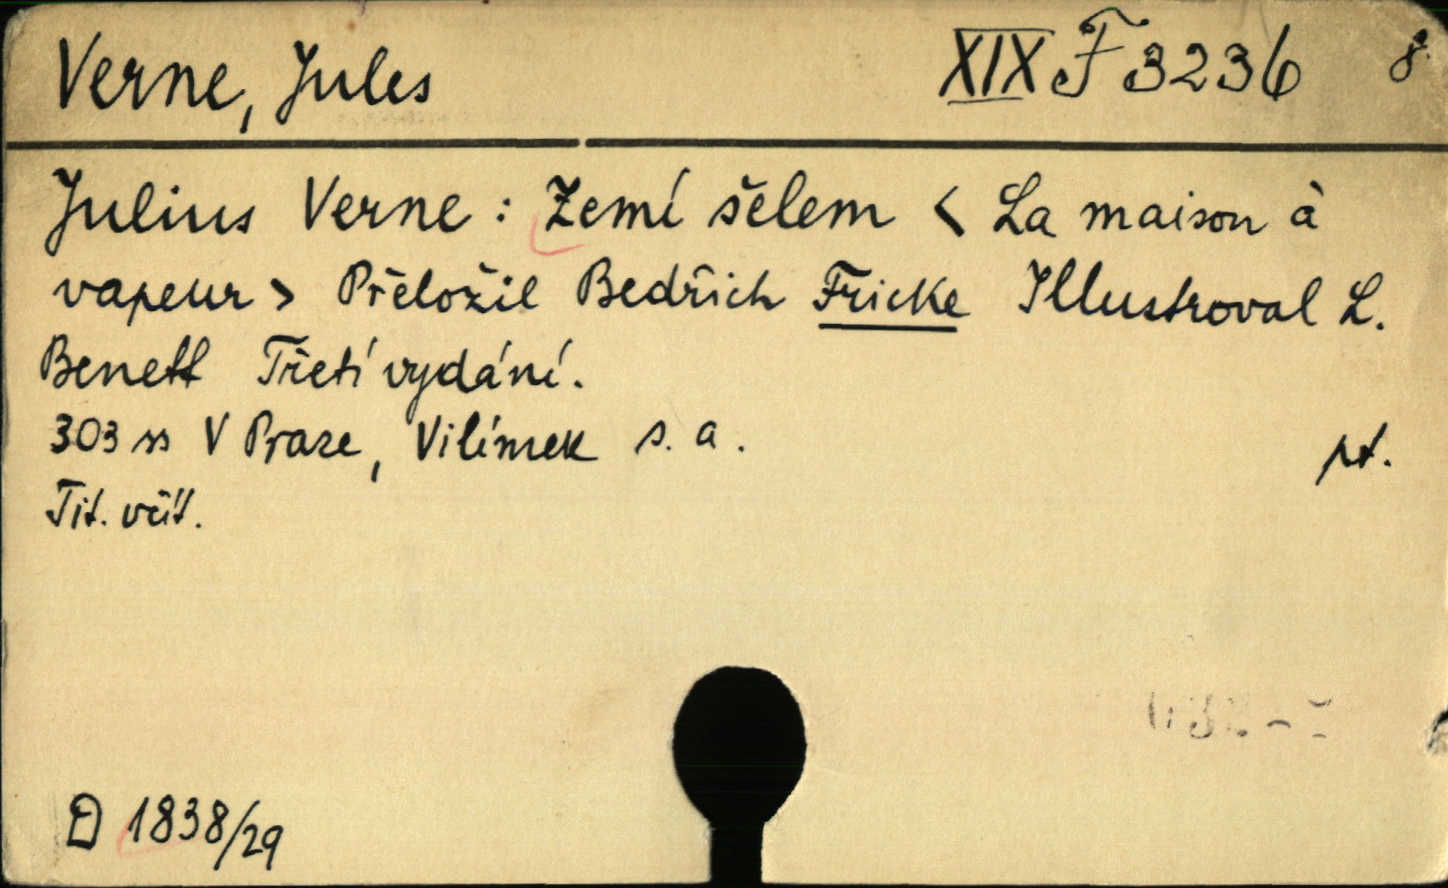 Verne, Jules XIX F 3236 8.
Julius Verne : Zemí šelem < La maison à
vapeur > Přeložil Bedřich Fricke Illustroval L.
Benett Třetí vydání.
303 ss V Praze, Vilímek s. a.
pt.
Tit.
D 1838/29